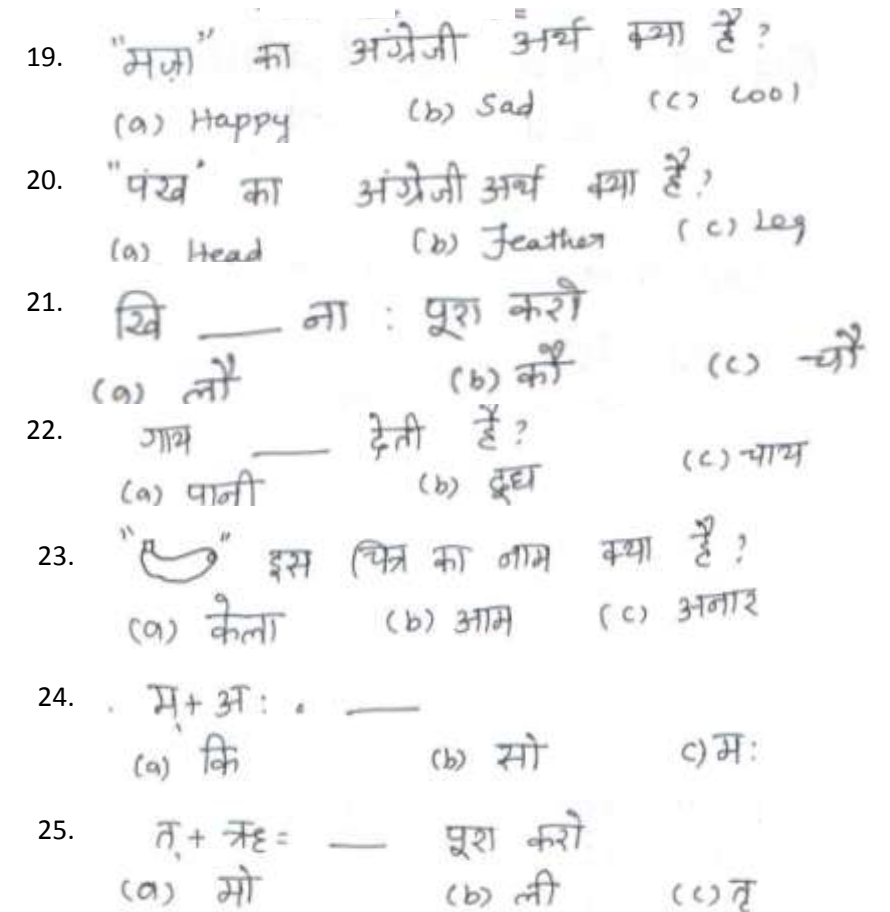 19. "मज़ा" का अंग्रेजी अर्थ क्या है?
(a) Happy (b) Sad (c) Cool
20. "पंख" का अंग्रेजी अर्थ क्या है?
(a) Head (b) Feather (c) Leg
21. खि ___ ना : पूरा करो
(a) लौ (b) कौ (c) चौ
22. गाय ___ देती है?
(a) पानी (b) दूध (c) चाय
23. " " इस चित्र का नाम क्या है?
(a) केला (b) आम (c) अनार
24. म् + अ: . ___
(a) कि (b) सो c) म:
25. त् + ऋ = ___ पूरा करो
(a) मो (b) ली (c) तृ